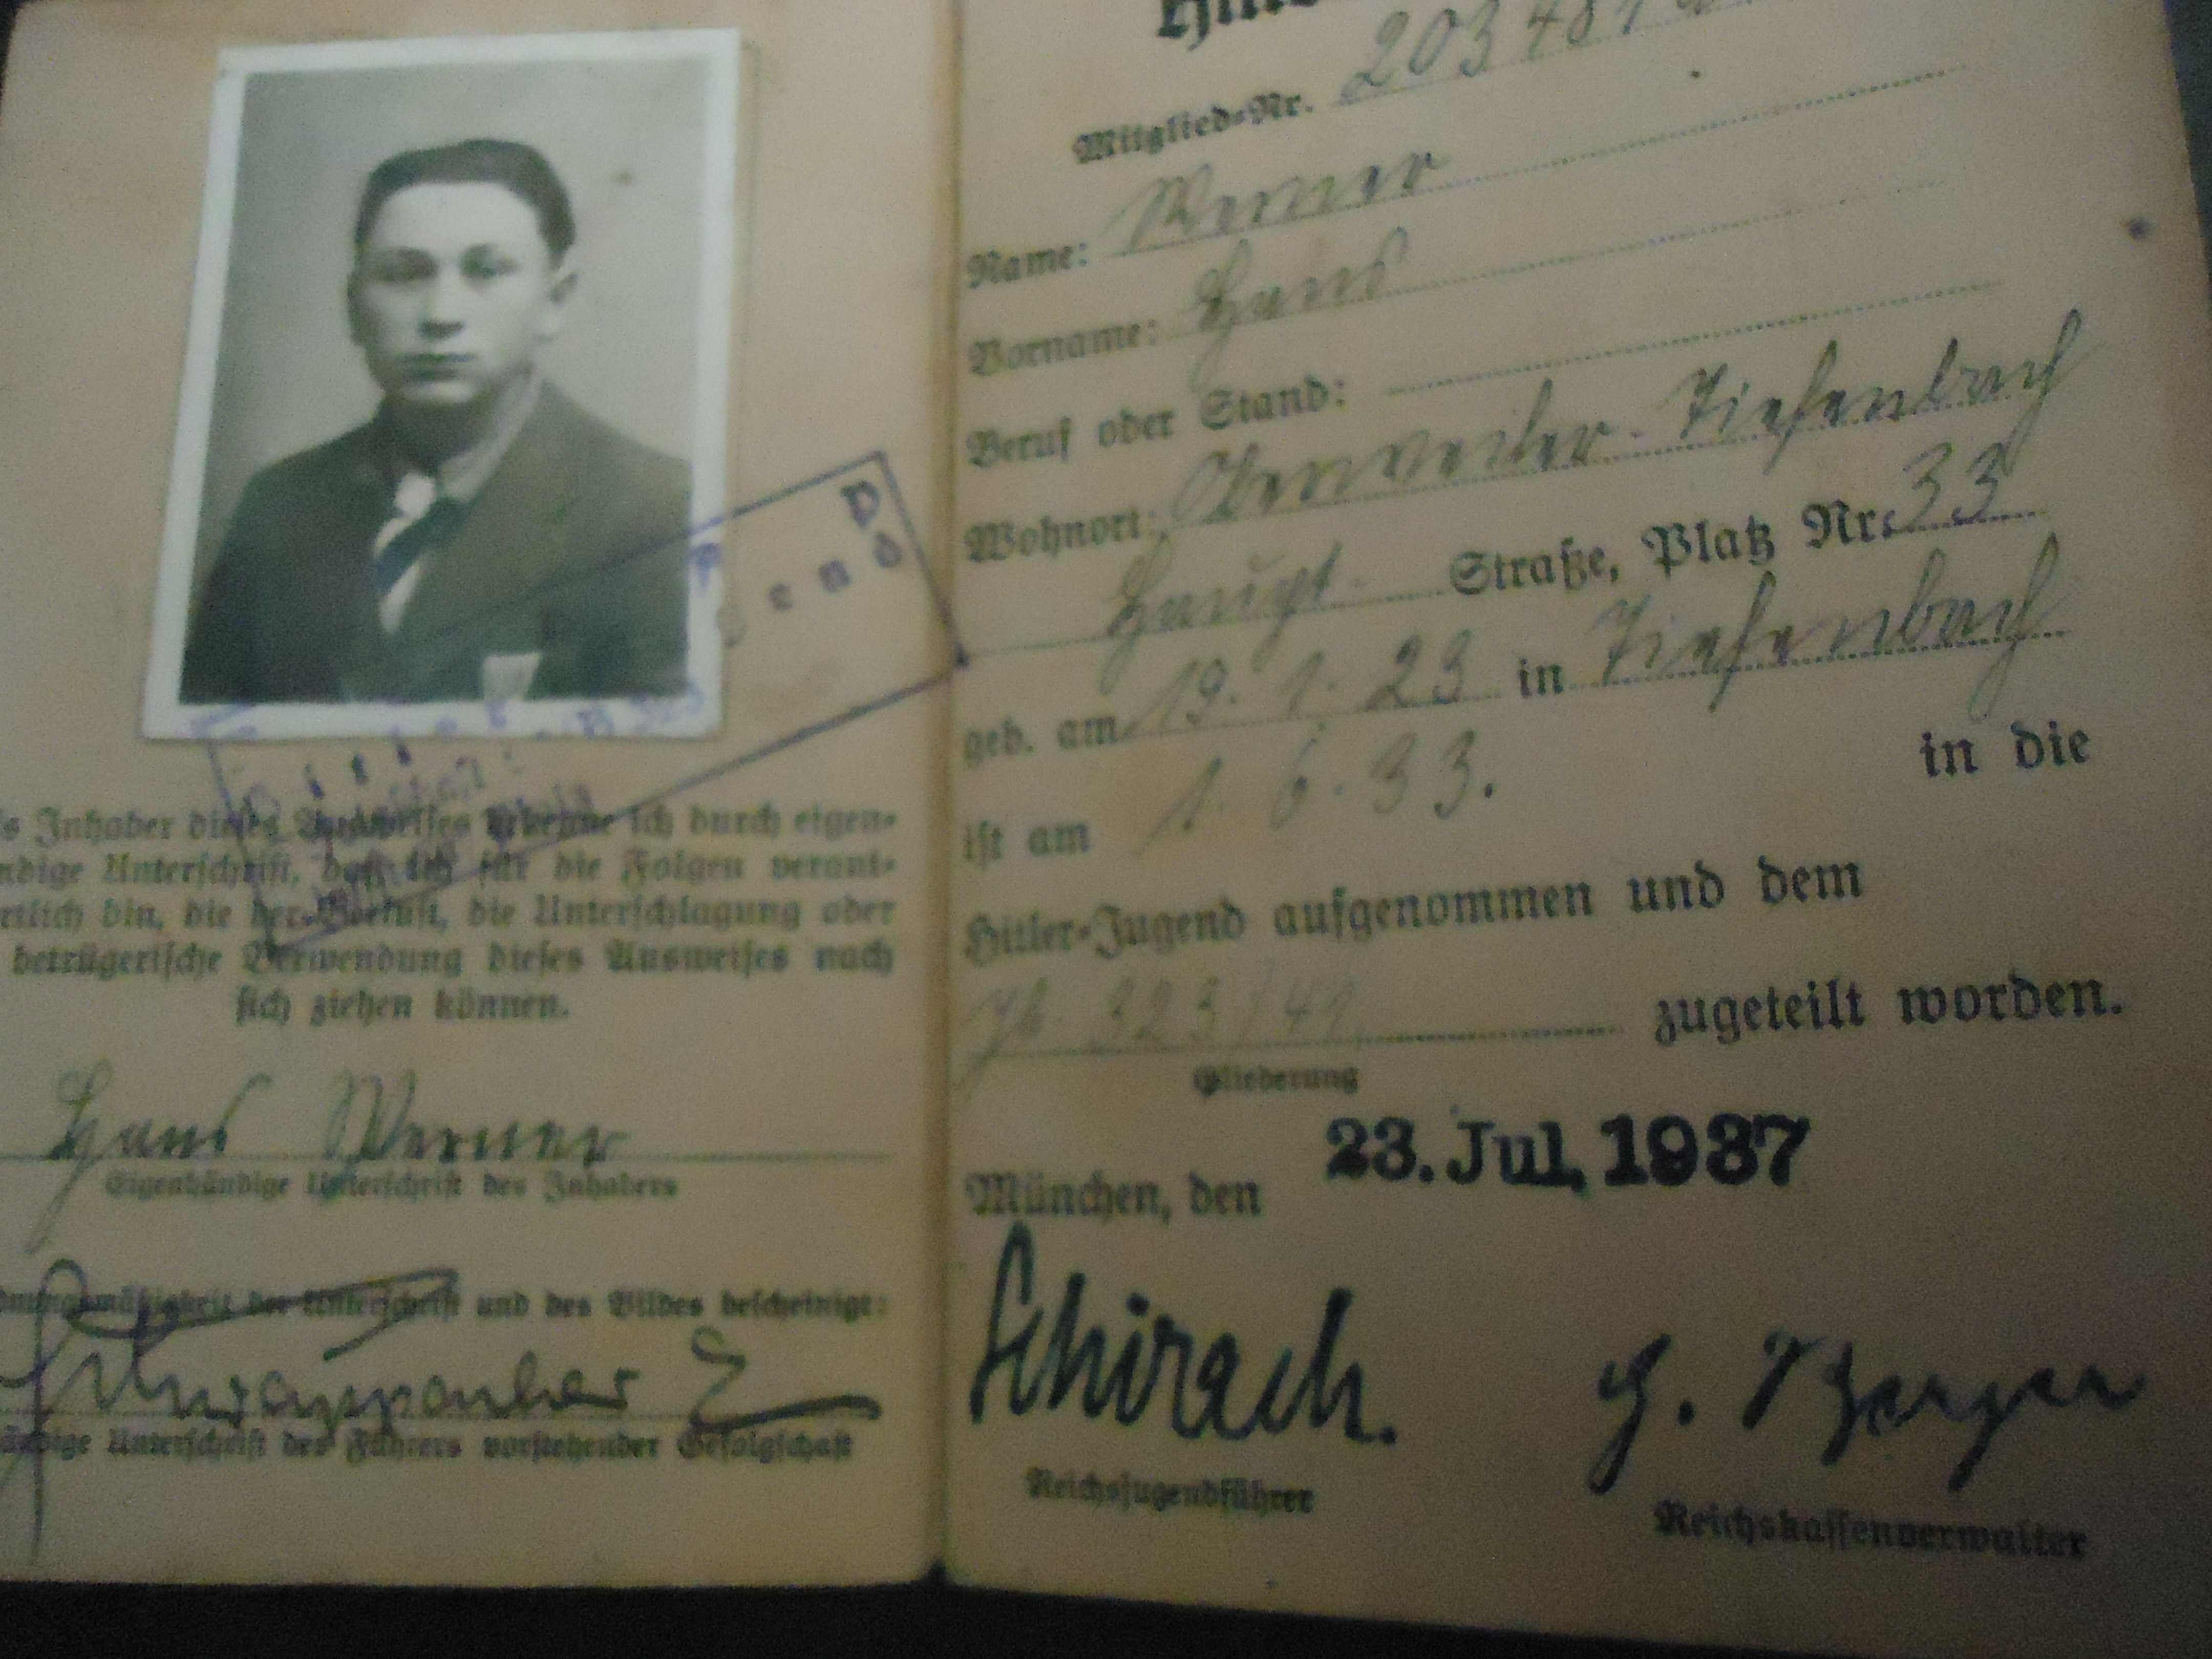 Inhaber dieses Ausweises erkenne ich durch eigen-
ndige Unterschrift, daß ich für die Folgen verant-
rtlich bin, die der Verlust, die Unterschlagung oder
betrügerische Verwendung dieses Ausweises nach
sich ziehen können.
Hans Werner
Eigenhändige Unterschrift des Inhabers
der Unterschrift und des Bildes bescheinigt:
Unterschrift des Führers vorstehender Gefolgschaft
Mitglied-Nr.
Name: Werner
Vorname: Hans
Beruf oder Stand:
Wohnort: Oberweiler-Tiefenbach
Haupt- Straße, Platz Nr. 33
geb. am 19. 1. 23 in Tiefenbach
ist am 1. 6. 33. in die
Hitler-Jugend aufgenommen und dem
323/42 zugeteilt worden.
Gliederung
München, den 23. Jul. 1937
Schirach.
G. Berger
Reichsjugendführer
Reichskassenverwalter